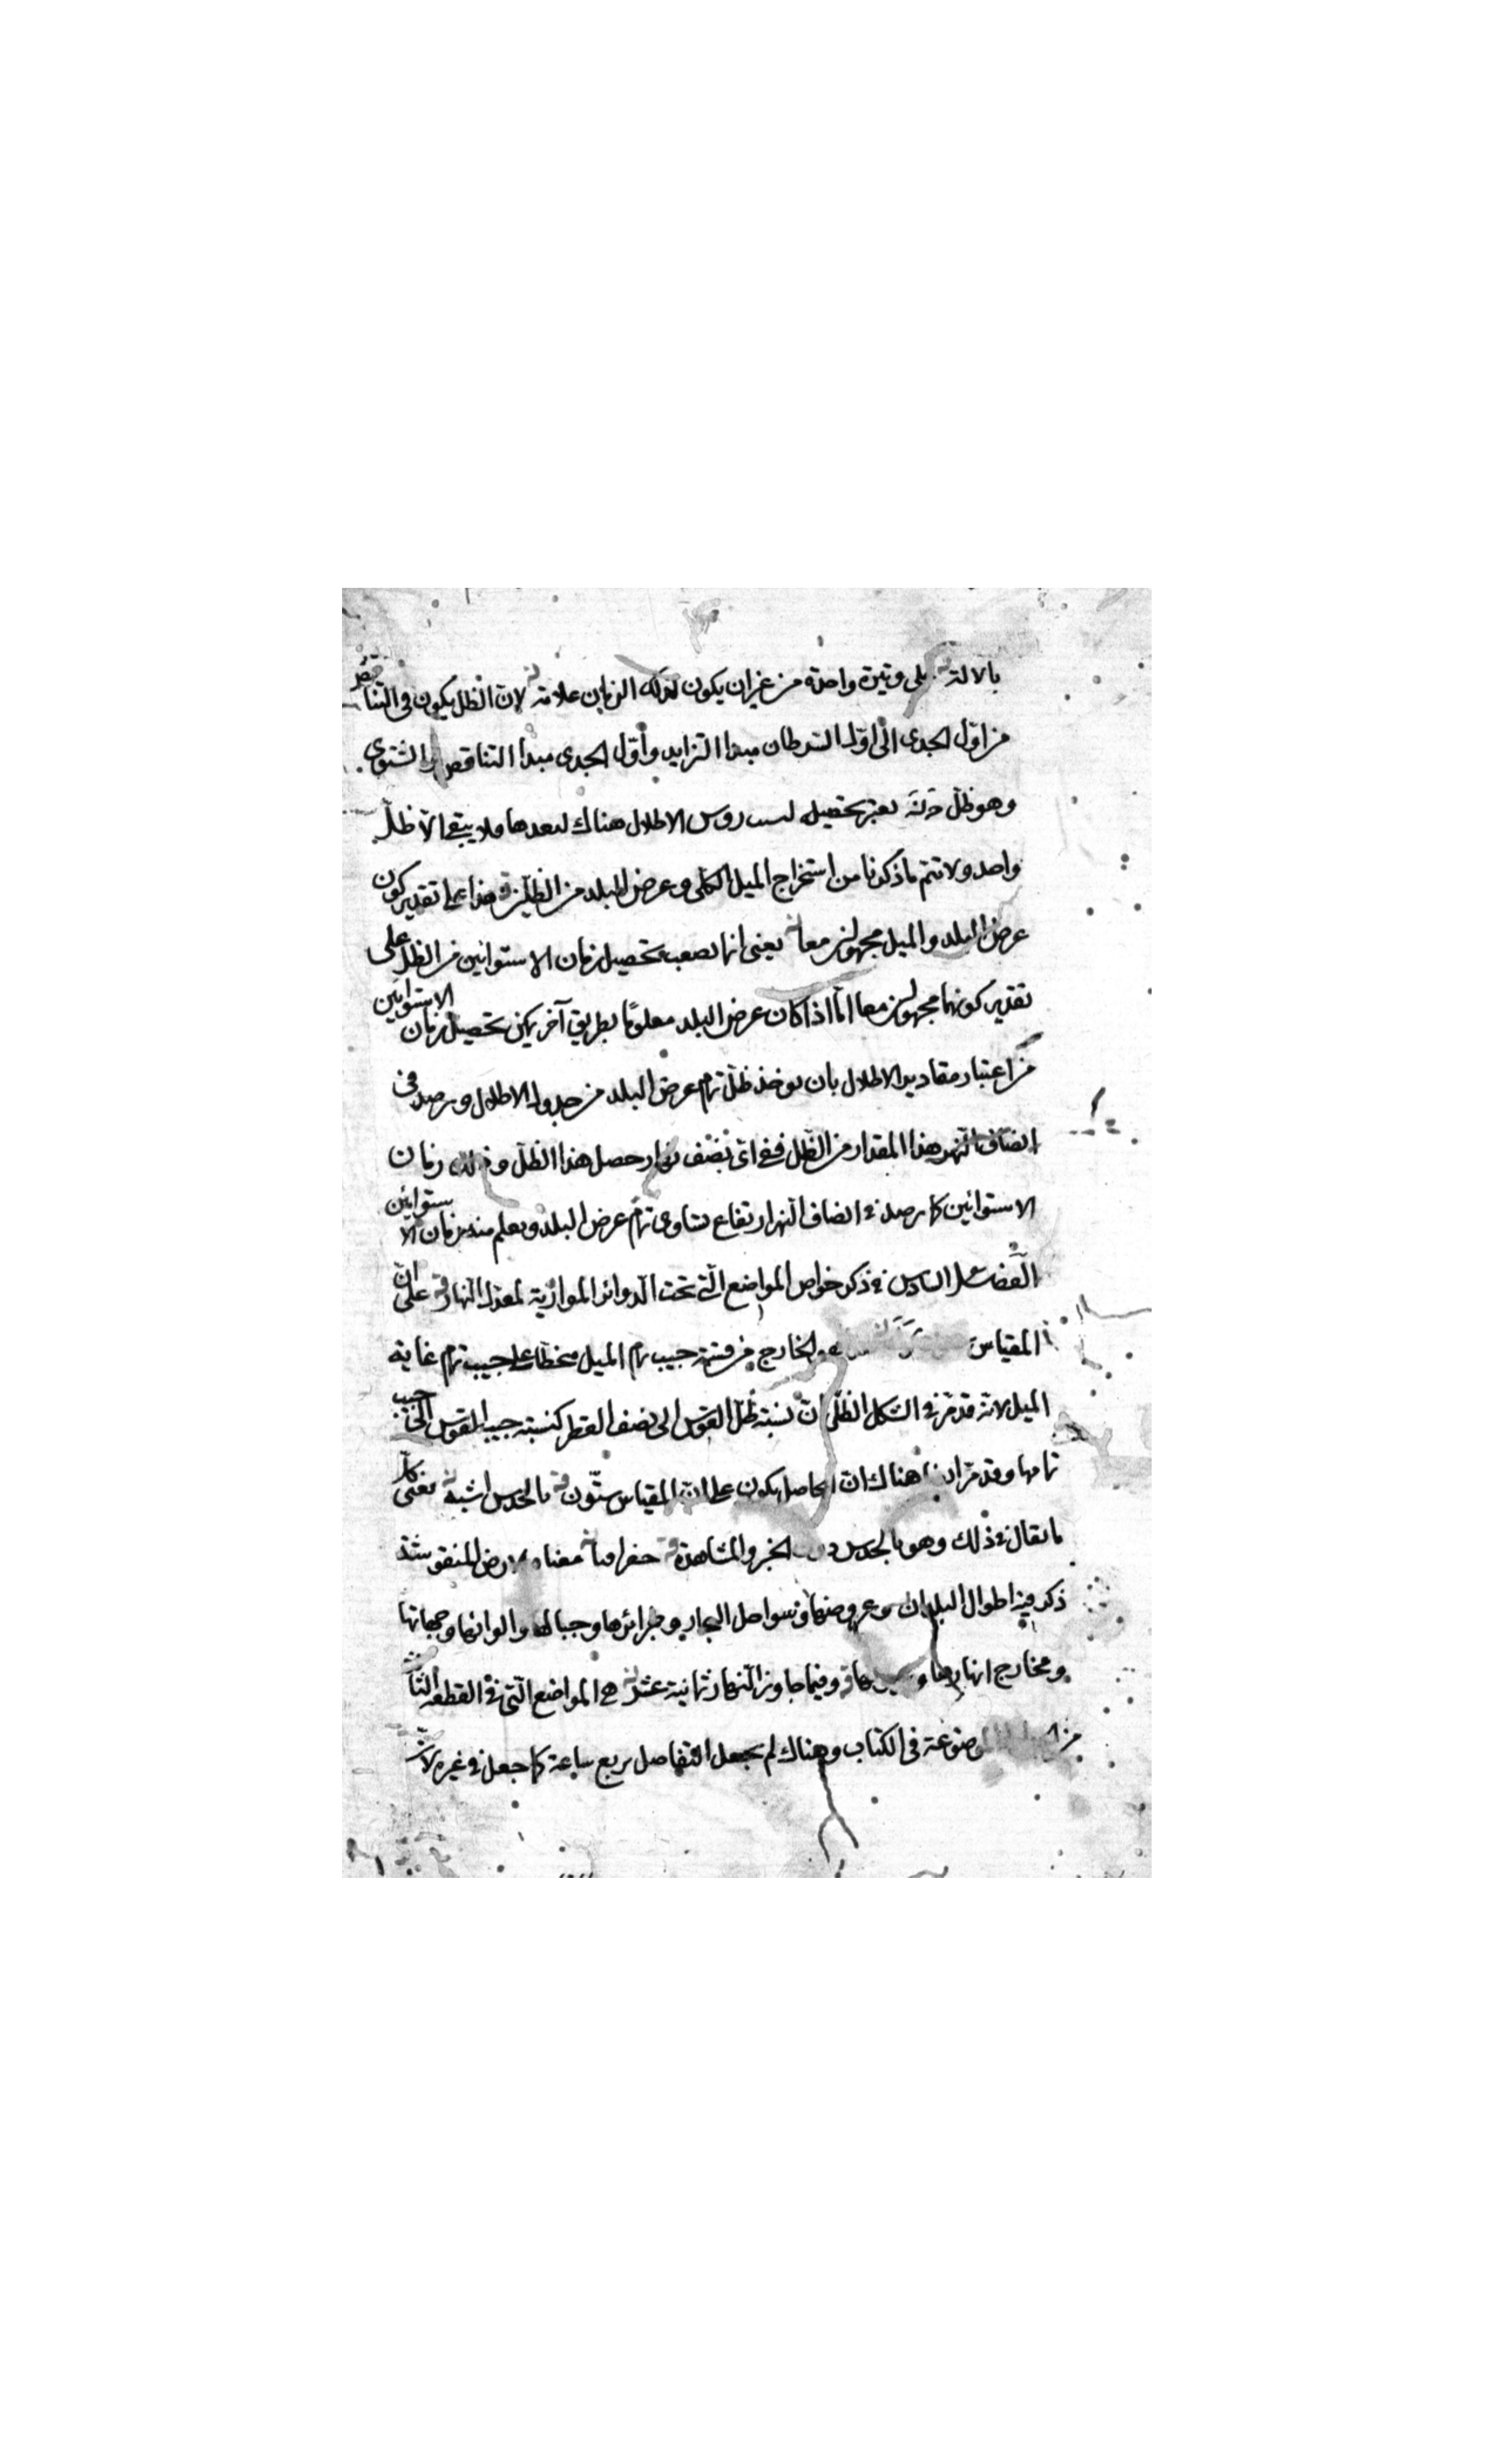 بالالة على وتيرة واحدة من غير ان يكون لذلك الزمان علامة لان الظل يكون فى التناقص
من اوّل الجدى الى اوّل السرطان مبدا التزايد واوّل الجدى مبدا التناقص والشتوى
وهو ظلّ يعتبر تحصيله لسب روس الاظلال هناك لبعدها فلا يبقى الّا ظلّ
واحد ولا تتم ما ذكرنا من استخراج الميل الكلى وعرض البلد من الظلّين هذا على تقدير كون
عرض البلد والميل مجهولين معا يعنى انما يصعب تحصيل زمان الاستوائين من الظل على
تقدير كونهما مجهولين معا امّا اذا كان عرض البلد معلومًا بطريق آخر يمكن تحصيل زمان الاستوائين
من اعتبار مقادير الاظلال بان يوخذ ظلّ تمام عرض البلد من جدول الاظلال ويرصد فى
انصاف النهر هذا المقدار من الظّل ففى اىّ نصف نهار حصل هذا الظلّ فذلك زمان
الاستوائين كما يرصد فى انصاف النهار ارتفاع يساوى تمام عرض البلد ويعلم منه زمان الاستوائين
الفصل السادس فى ذكر خواص المواضع الّتى تحت الدوائر الموازية لمعدل النهار على انّ
المقياس الخارج من قسمة جيب تمام الميل منحطّا على جيب تمام غاية
الميل لانه قد مرّ فى الشكل الظلّى انّ نسبة ظلّ القوس الى نصف القطر كنسبة جيب القوس الى جيب
تمامها وقد مرّ ايضا هناك انّ الحاصل يكون على انّ المقياس ستّون بالحدس اشبه يعنى كلّ
ما يقال فى ذلك وهو بالحدس دون الخبر والمشاهدة جغرافيا معناه الارض المنقوشة
ذكر فيه اطوال البلدان وعروضها وسواحل البحار وجزائرها وجبالها والوانها وجهاتها
ومخارج انهارها وفيما جاوز النهار ثمانية عشر هى المواضع الّتى فى القطعة الثا
من الموضوعة فى الكتاب وهناك لم يجعل التفاضل بربع ساعة كما جعل فى غيره لان